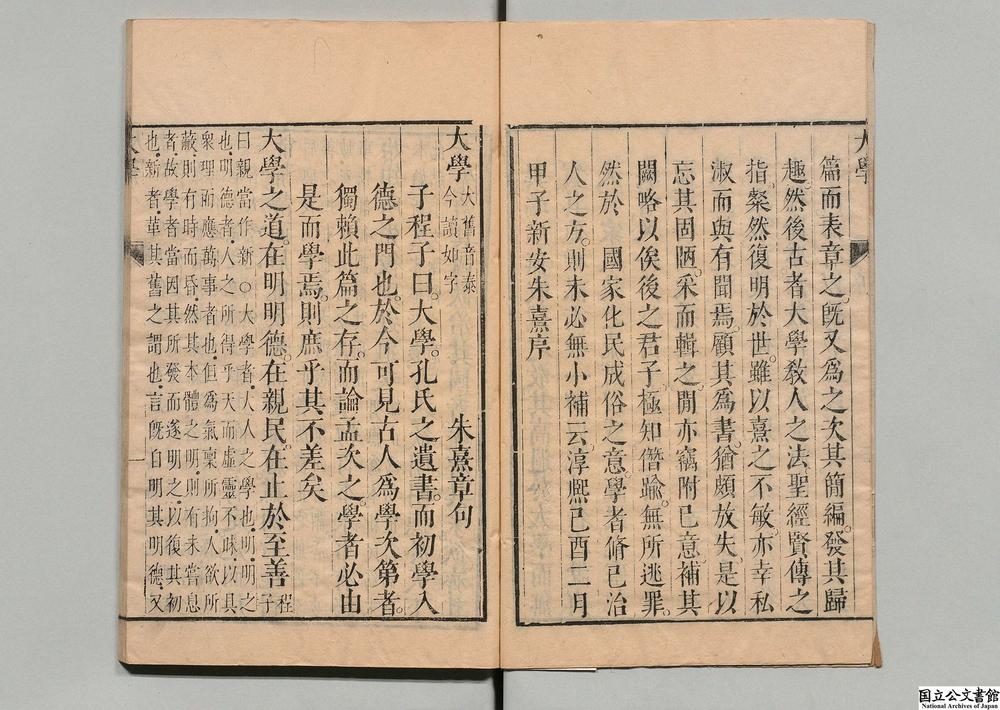 大學
篇而表章之。旣又爲之次其簡編。發其歸
趣。然後古者大學敎人之法。聖經賢傳之
指。粲然復明於世。雖以熹之不敏。亦幸私
淑而與有聞焉。顧其爲書。猶頗放失。是以
忘其固陋。采而輯之。閒亦竊附已意。補其
闕略。以俟後之君子。極知僭踰。無所逃罪。
然於　國家化民成俗之意。學者脩已治
人之方。則未必無小補云。淳熈己酉二月
甲子新安朱熹序
大學
大舊音泰
今讀如字
朱熹章句
子程子曰。大學。孔氏之遺書。而初學入
德之門也。於今可見古人爲學次第者。
獨賴此篇之存。而論孟次之。學者必由
是而學焉。則庶乎其不差矣
大學之道。在明明德。在親民。在止於至善
程
子
曰親當作新○大學者。大人之學也。明。明之
也。明德者。人之所得乎天而虛靈不昧。以具
衆理而應萬事者也。但爲氣稟所拘人欲所
蔽則有時而昏。然其本體之明。則有未嘗息
者。故學者當因其所發而遂明之。以復其初
也。新者。革其舊之謂也。言旣自明其明德。又
大學
一
国立公文書館
National Archives of Japan